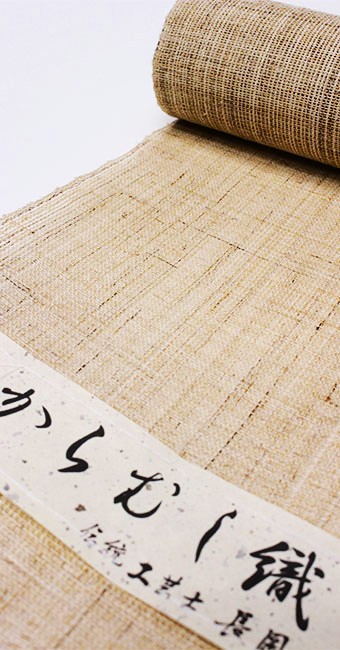 からむし織
伝統工芸士 長